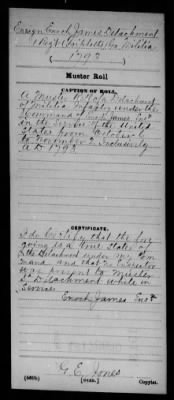 Ensign Enoch James Detachment
1 Regt (Tripletts) Va. Militia
(1793)
Muster Roll
CAPTION OF ROLL.
A Muster Roll of a Detachment
of Militia Infantry under the
Command of Enoch James Ensn
in the Service of the United
States from October
to November 2 inclusively
A.D. 1793
CERTIFICATE.
I do Certify that the fore
going is a true State of
the Detachment under my Com
mand and that
was present to Muster
Detachment while in
Service
Enoch James Ensn
G. E. Jones
Copyist.